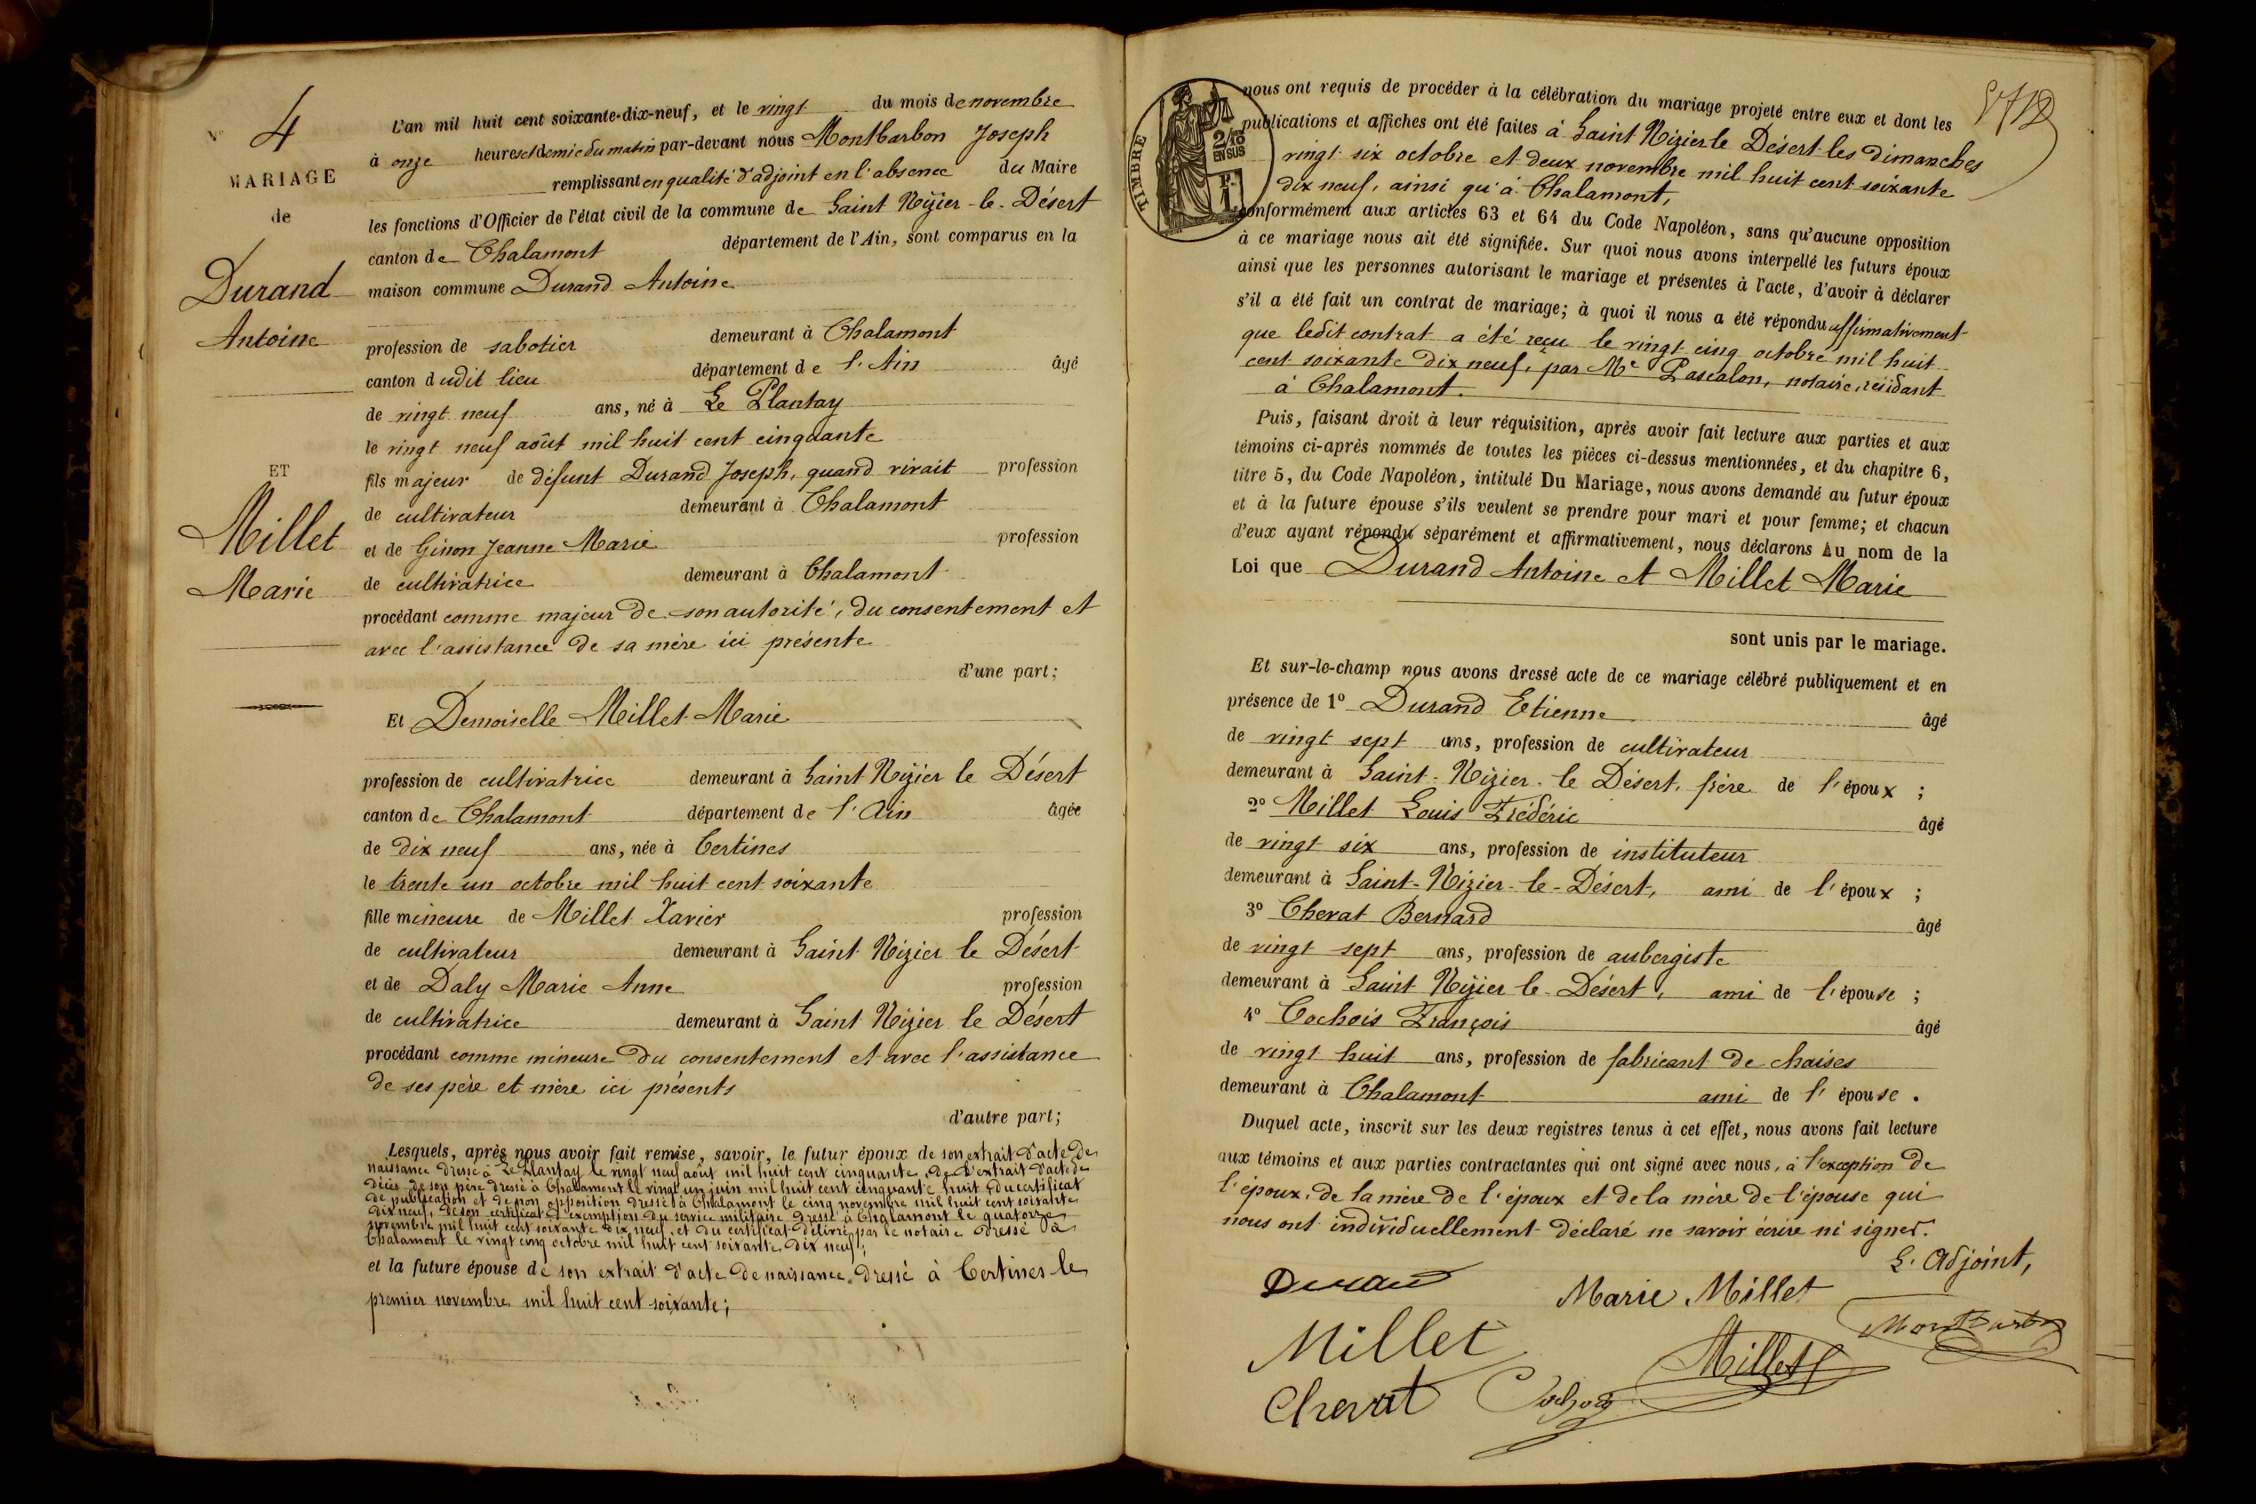 N° 4
MARIAGE
de
Durand
Antoine
ET
Millet
Marie
L'an mil huit cent soixante-dix-neuf, et le vingt du mois de novembre
à onze heures et demie du matin par-devant nous Montbarbon Joseph
remplissant en qualité d'adjoint en l'absence du Maire
les fonctions d'Officier de l'état civil de la commune de Saint Nizier-le-Désert
canton de Chalamont département de l'Ain, sont comparus en la
maison commune Durand Antoine
profession de sabotier demeurant à Chalamont
canton dudit lieu département de l'Ain âgé
de vingt neuf ans, né à Le Plantay
le vingt neuf août mil huit cent cinquante
fils majeur de défunt Durand Joseph, quand vivait profession
de cultivateur demeurant à Chalamont
et de Ginon Jeanne Marie profession
de cultivatrice demeurant à Chalamont
procédant comme majeur de son autorité, du consentement et
avec l'assistance de sa mère ici présente
d'une part;
Et Demoiselle Millet Marie
profession de cultivatrice demeurant à Saint Nizier le Désert
canton de Chalamont département de l'Ain âgée
de dix neuf ans, née à Certines
le trente un octobre mil huit cent soixante
fille mineure de Millet Xavier profession
de cultivateur demeurant à Saint Nizier le Désert
et de Daly Marie Anne profession
de cultivatrice demeurant à Saint Nizier le Désert
procédant comme mineure du consentement et avec l'assistance
de ses père et mère ici présents
d'autre part;
Lesquels, après nous avoir fait remise, savoir, le futur époux de son extrait d'acte de
naissance dressé à Le Plantay le vingt neuf août mil huit cent cinquante, de l'extrait d'acte de
décès de son père dressé à Chalamont le vingt un juin mil huit cent cinquante huit, du certificat
de publication et de non opposition dressé à Chalamont le cinq novembre mil huit cent soixante
dix neuf, de son certificat d'exemption du service militaire dressé à Chalamont le quatorze
novembre mil huit cent soixante dix neuf, et du certificat délivré par le notaire dressé à
Chalamont le vingt cinq octobre mil huit cent soixante dix neuf;
et la future épouse de son extrait d'acte de naissance dressé à Certines le
premier novembre mil huit cent soixante;
TIMBRE
2/10
EN SUS
nous ont requis de procéder à la célébration du mariage projeté entre eux et dont les
publications et affiches ont été faites à Saint Nizier le Désert les dimanches
vingt six octobre et deux novembre mil huit cent soixante
dix neuf, ainsi qu'à Chalamont,
conformément aux articles 63 et 64 du Code Napoléon, sans qu'aucune opposition
à ce mariage nous ait été signifiée. Sur quoi nous avons interpellé les futurs époux
ainsi que les personnes autorisant le mariage et présentes à l'acte, d'avoir à déclarer
s'il a été fait un contrat de mariage; à quoi il nous a été répondu affirmativement
que ledit contrat a été reçu le vingt cinq octobre mil huit
cent soixante dix neuf, par Me Pascalon, notaire, résidant
à Chalamont.
Puis, faisant droit à leur réquisition, après avoir fait lecture aux parties et aux
témoins ci-après nommés de toutes les pièces ci-dessus mentionnées, et du chapitre 6,
titre 5, du Code Napoléon, intitulé Du Mariage, nous avons demandé au futur époux
et à la future épouse s'ils veulent se prendre pour mari et pour femme; et chacun
d'eux ayant répondu séparément et affirmativement, nous déclarons Au nom de la
Loi que Durand Antoine et Millet Marie
sont unis par le mariage.
Et sur-le-champ nous avons dressé acte de ce mariage célébré publiquement et en
présence de 1° Durand Etienne âgé
de vingt sept ans, profession de cultivateur
demeurant à Saint-Nizier-le Désert, frère de l'époux ;
2° Millet Louis Frédéric âgé
de vingt six ans, profession de instituteur
demeurant à Saint-Nizier-le-Désert, ami de l'époux ;
3° Chevat Bernard âgé
de vingt sept ans, profession de aubergiste
demeurant à Saint Nizier le-Désert, ami de l'épouse ;
4° Cochois François âgé
de vingt huit ans, profession de fabricant de chaises
demeurant à Chalamont ami de l'épouse.
Duquel acte, inscrit sur les deux registres tenus à cet effet, nous avons fait lecture
aux témoins et aux parties contractantes qui ont signé avec nous, à l'exception de
l'époux, de la mère de l'époux et de la mère de l'épouse qui
nous ont individuellement déclaré ne savoir écrire ni signer.
L'Adjoint,
Durand
Marie Millet
Montbarbon
Millet
Millet
Chevat
Cochois